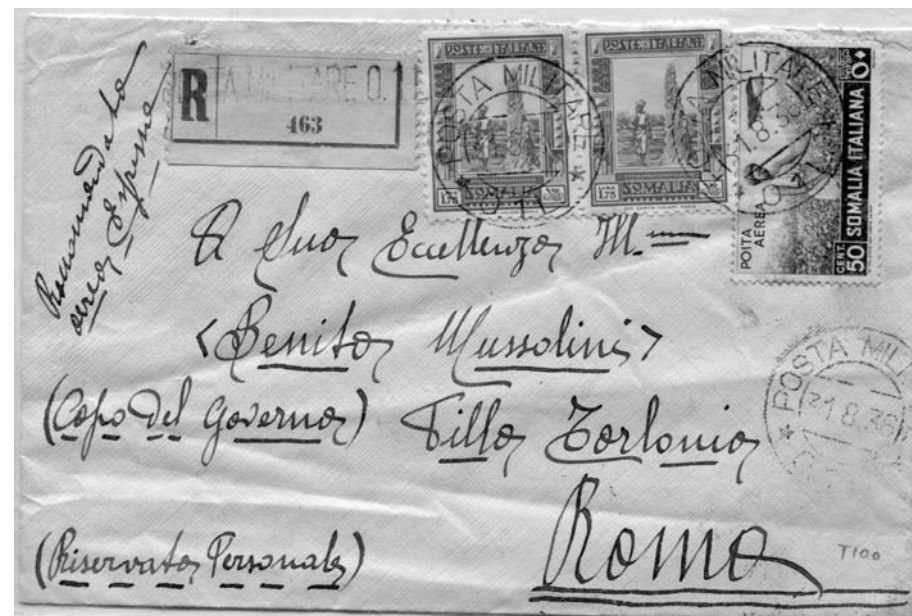 Raccomandata
aerea Espresso
R
POSTA MILITARE O.1
463
POSTE ITALIANE
1.75 SOMALIA
POSTE ITALIANE
1.75 SOMALIA
POSTA AEREA
CENT. 50 SOMALIA ITALIANA
POSTA MILITARE
31.8.36
A Sua Eccellenza
<Benito Mussolini>
(Capo del Governo) Villa Torlonia
POSTA MIL
31.8.36
Roma
(Riservata Personale)
T100